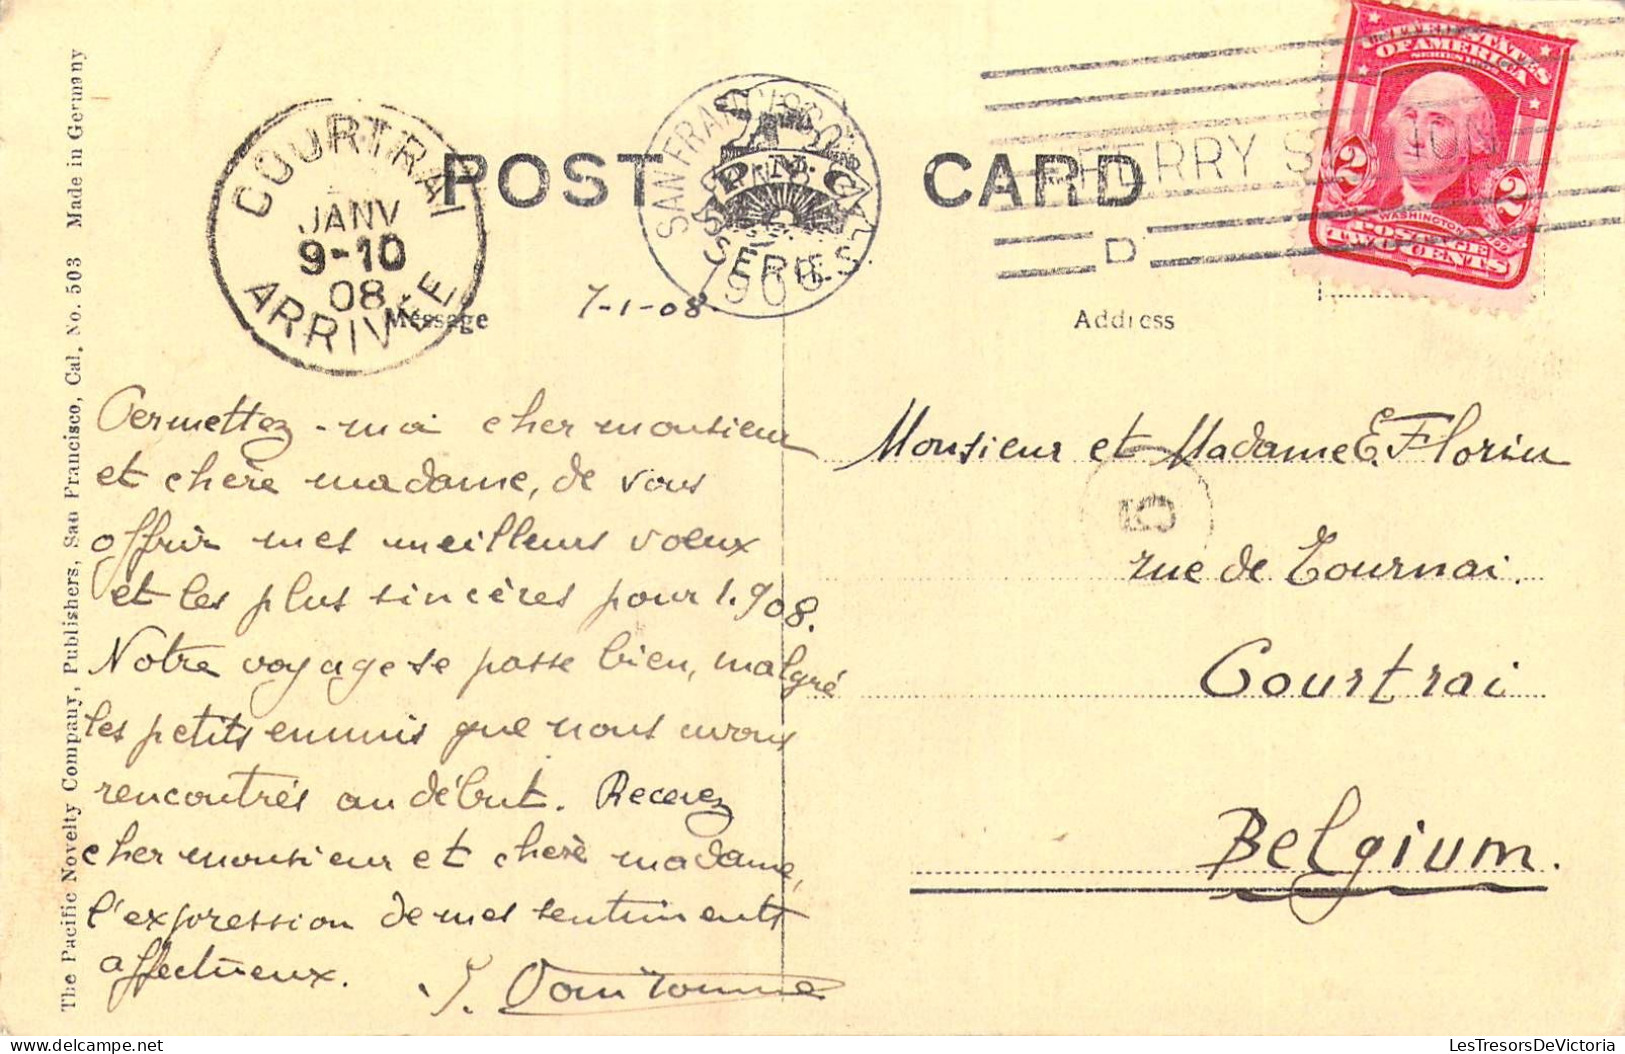 The Pacific Novelty Company, Publishers, San Francisco, Cal. No. 503 Made in Germany
COURTRAI
JANV
9-10
08
ARRIVÉE
POST CARD
SAN FRANCISCO
P.N.C.
SERIES.
1908
FERRY STATION
D
UNITED STATES
OF AMERICA
WASHINGTON
2 2
POSTAGE
TWO CENTS
Message
7-1-08.
Address
Permettez-moi cher monsieur
et chère madame, de vous
offrir mes meilleurs voeux
et les plus sincères pour 1.908.
Notre voyage se passe bien, malgré
les petits ennuis que nous avons
rencontrés au début. Recevez
cher monsieur et chère madame,
l'expression de mes sentiments
affectueux.
Monsieur et Madame E. Florin
5
rue de Tournai.
Courtrai
Belgium.
LesTresorsDeVictoria